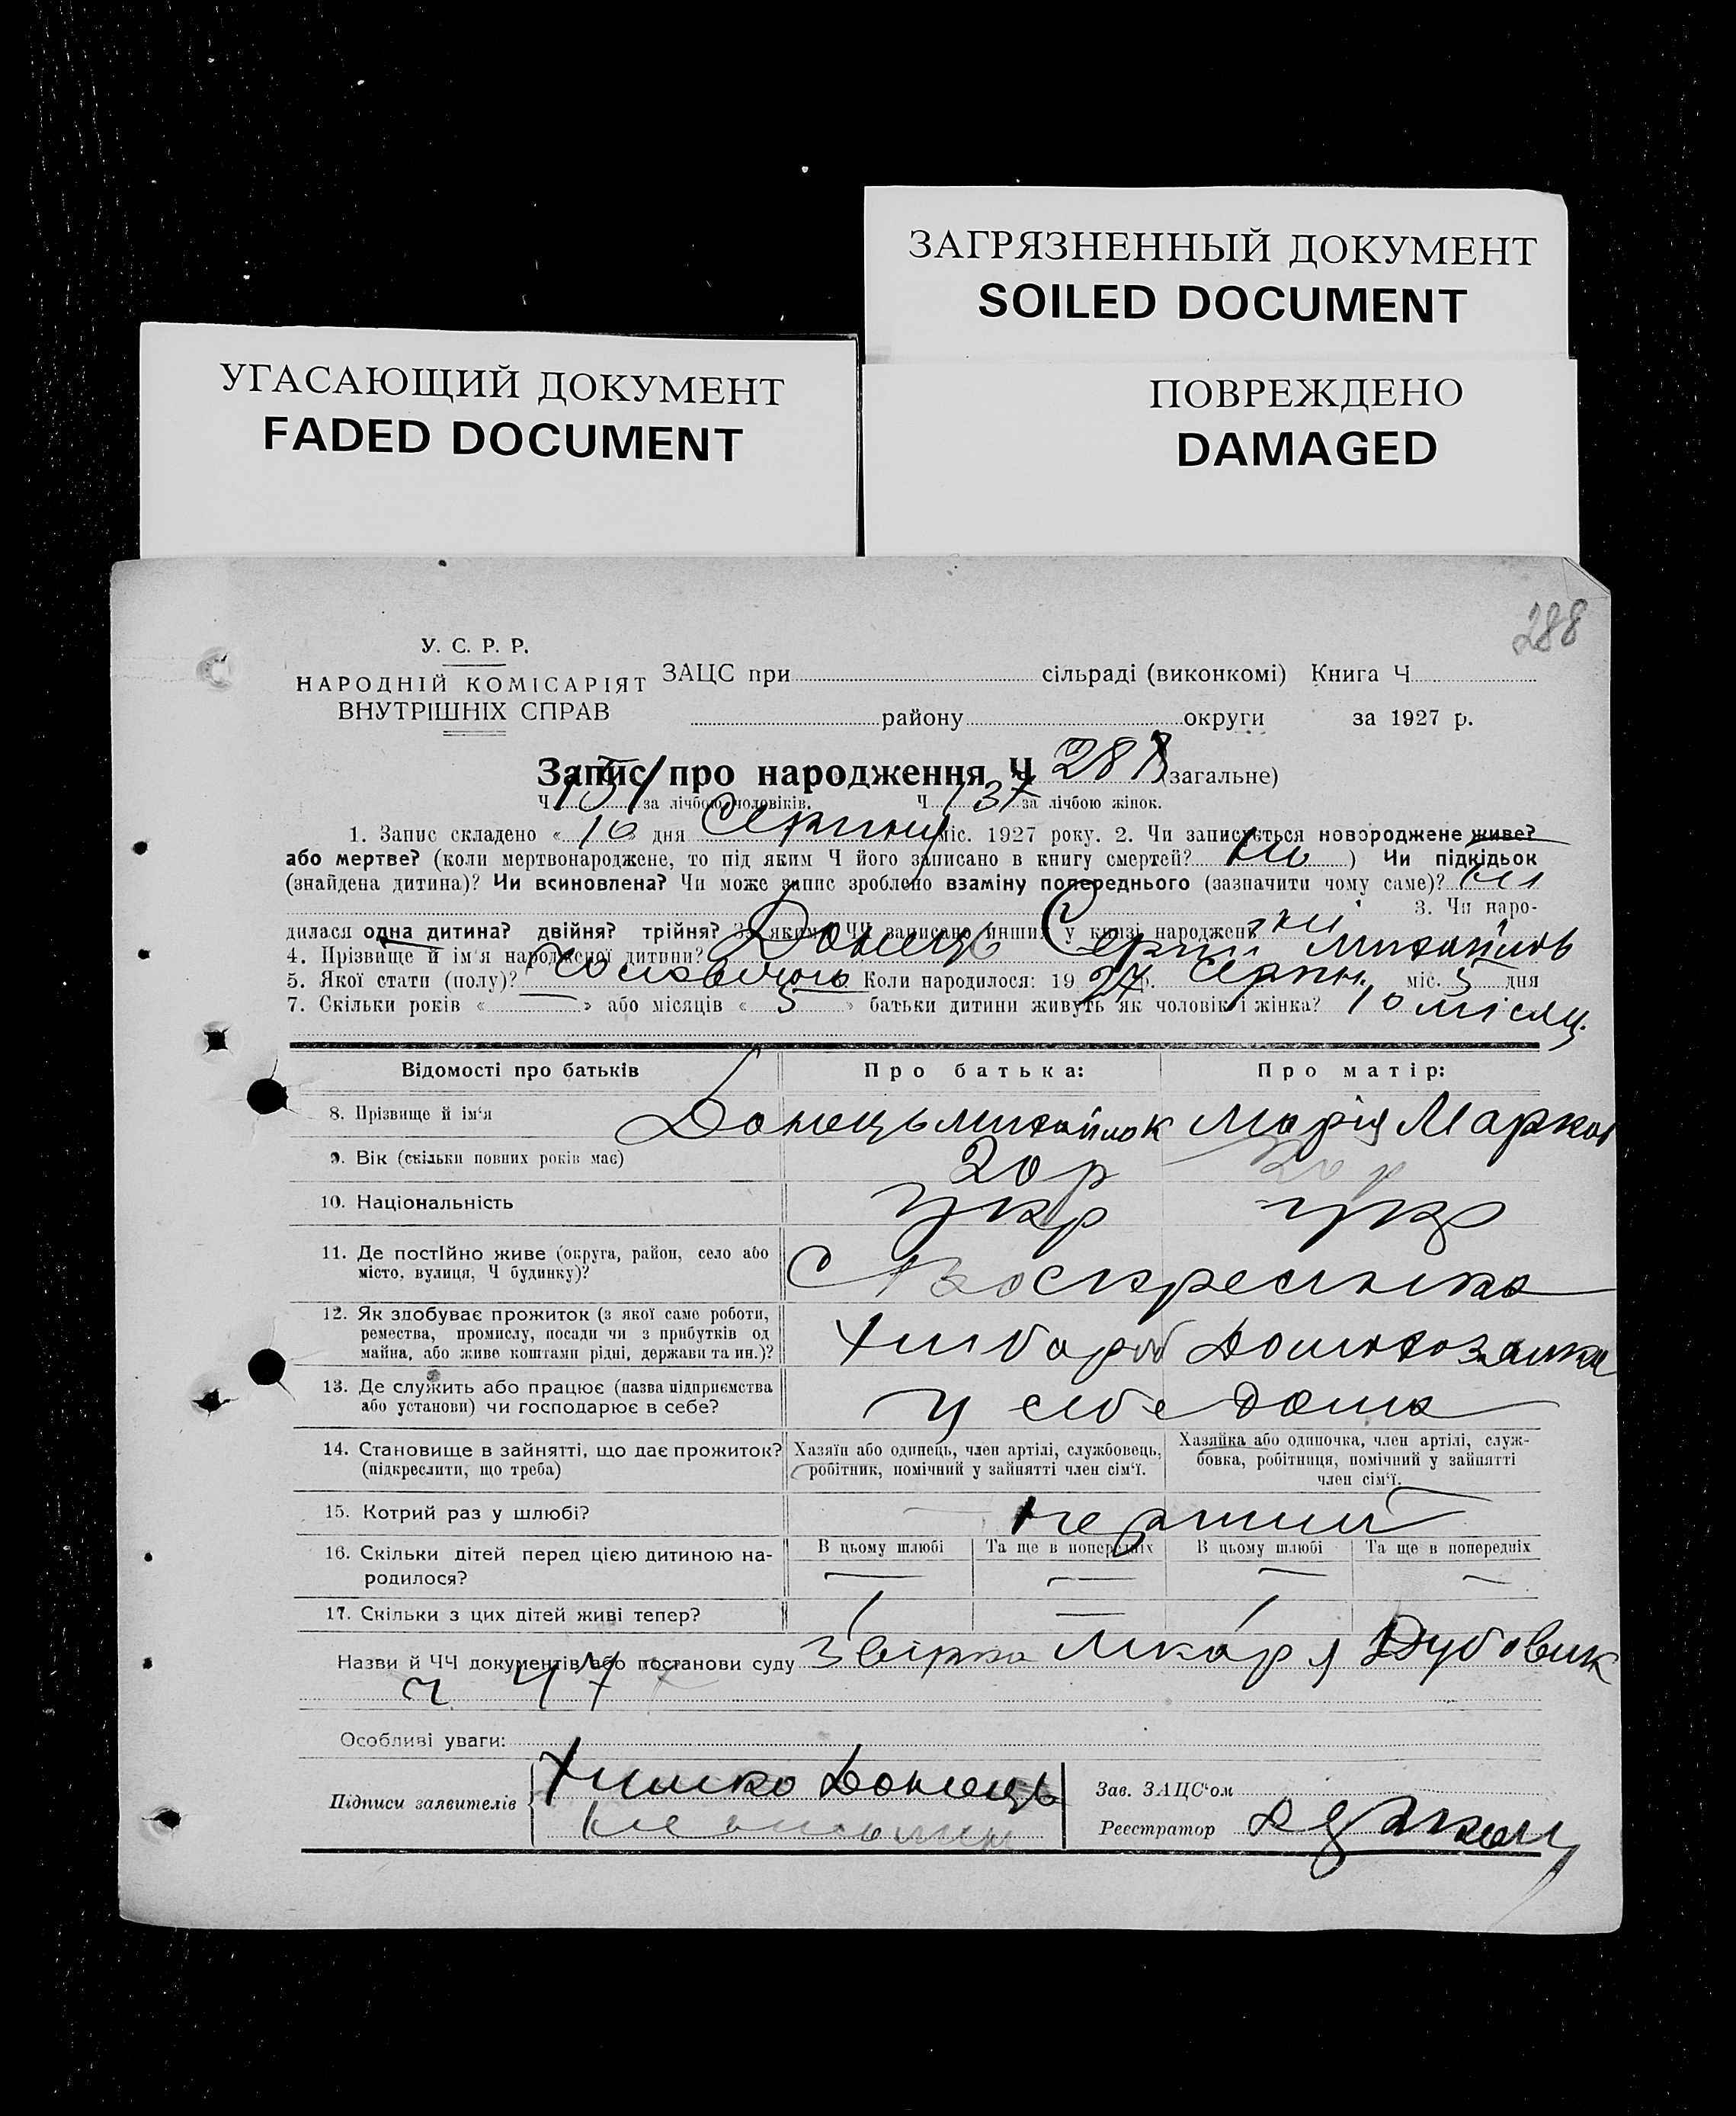 ЗАГРЯЗНЕННЫЙ ДОКУМЕНТ
SOILED DOCUMENT
УГАСАЮЩИЙ ДОКУМЕНТ
FADED DOCUMENT
ПОВРЕЖДЕНО
DAMAGED
288
У. С. Р. Р.
НАРОДНІЙ КОМІСАРІЯТ
ВНУТРІШНІХ СПРАВ
ЗАЦС при сільраді (виконкомі) Книга Ч
району округи за 1927 р.
Запис про народження Ч 288 (загальне)
Ч 151 за лічбою чоловіків. Ч 137 за лічбою жінок.
1. Запис складено « 16 » дня Серпня міс. 1927 року. 2. Чи записується новороджене живе?
або мертве? (коли мертвонароджене, то під яким Ч його записано в книгу смертей? ні ) Чи підкідьок
(знайдена дитина)? Чи всиновлена? Чи може запис зроблено взаміну попереднього (зазначити чому саме)? ні
3. Чи наро-
дилася одна дитина? двійня? трійня? За якими ЧЧ записано инших у книзі народжень? ні
4. Прізвище й ім'я народженої дитини? Донець Сергій Михайлов
5. Якої стати (полу)? Чоловічого Коли народилося: 1927 р. Серпн. міс. 5 дня
7. Скільки років « — » або місяців « » батьки дитини живуть як чоловік і жінка? 10 місяц.
Відомості про батьків Про батька: Про матір:
8. Прізвище й ім'я Донець Михайло Марія Марков
9. Вік (скільки повних років має) 20 р 20 р
10. Національність укр укр
11. Де постійно живе (округа, район, село або
місто, вулиця, Ч будинку)?
С Воскресенка
12. Як здобуває прожиток (з якої саме роботи,
ремества, промислу, посади чи з прибутків од
майна, або живе коштами рідні, держави та ин.)?
Хлібороб Домохазяйка
13. Де служить або працює (назва підприємства
або установи) чи господарює в себе?
У себе дома
14. Становище в зайнятті, що дає прожиток?
(підкреслити, що треба)
Хазяїн або одинець, член артілі, службовець,
робітник, помічний у зайнятті член сім'ї.
Хазяйка або одиночка, член артілі, служ-
бовка, робітниця, помічний у зайнятті
член сім'ї.
15. Котрий раз у шлюбі? перший
16. Скільки дітей перед цією дитиною на-
родилося?
В цьому шлюбі Та ще в попередніх В цьому шлюбі Та ще в попередніх
— — — —
17. Скільки з цих дітей живі тепер? 1 — 1
Назви й ЧЧ документів або постанови суду Дубовик
ч 47
Особливі уваги:
Підписи заявителів
Донець
Зав. ЗАЦС'ом
Реєстратор